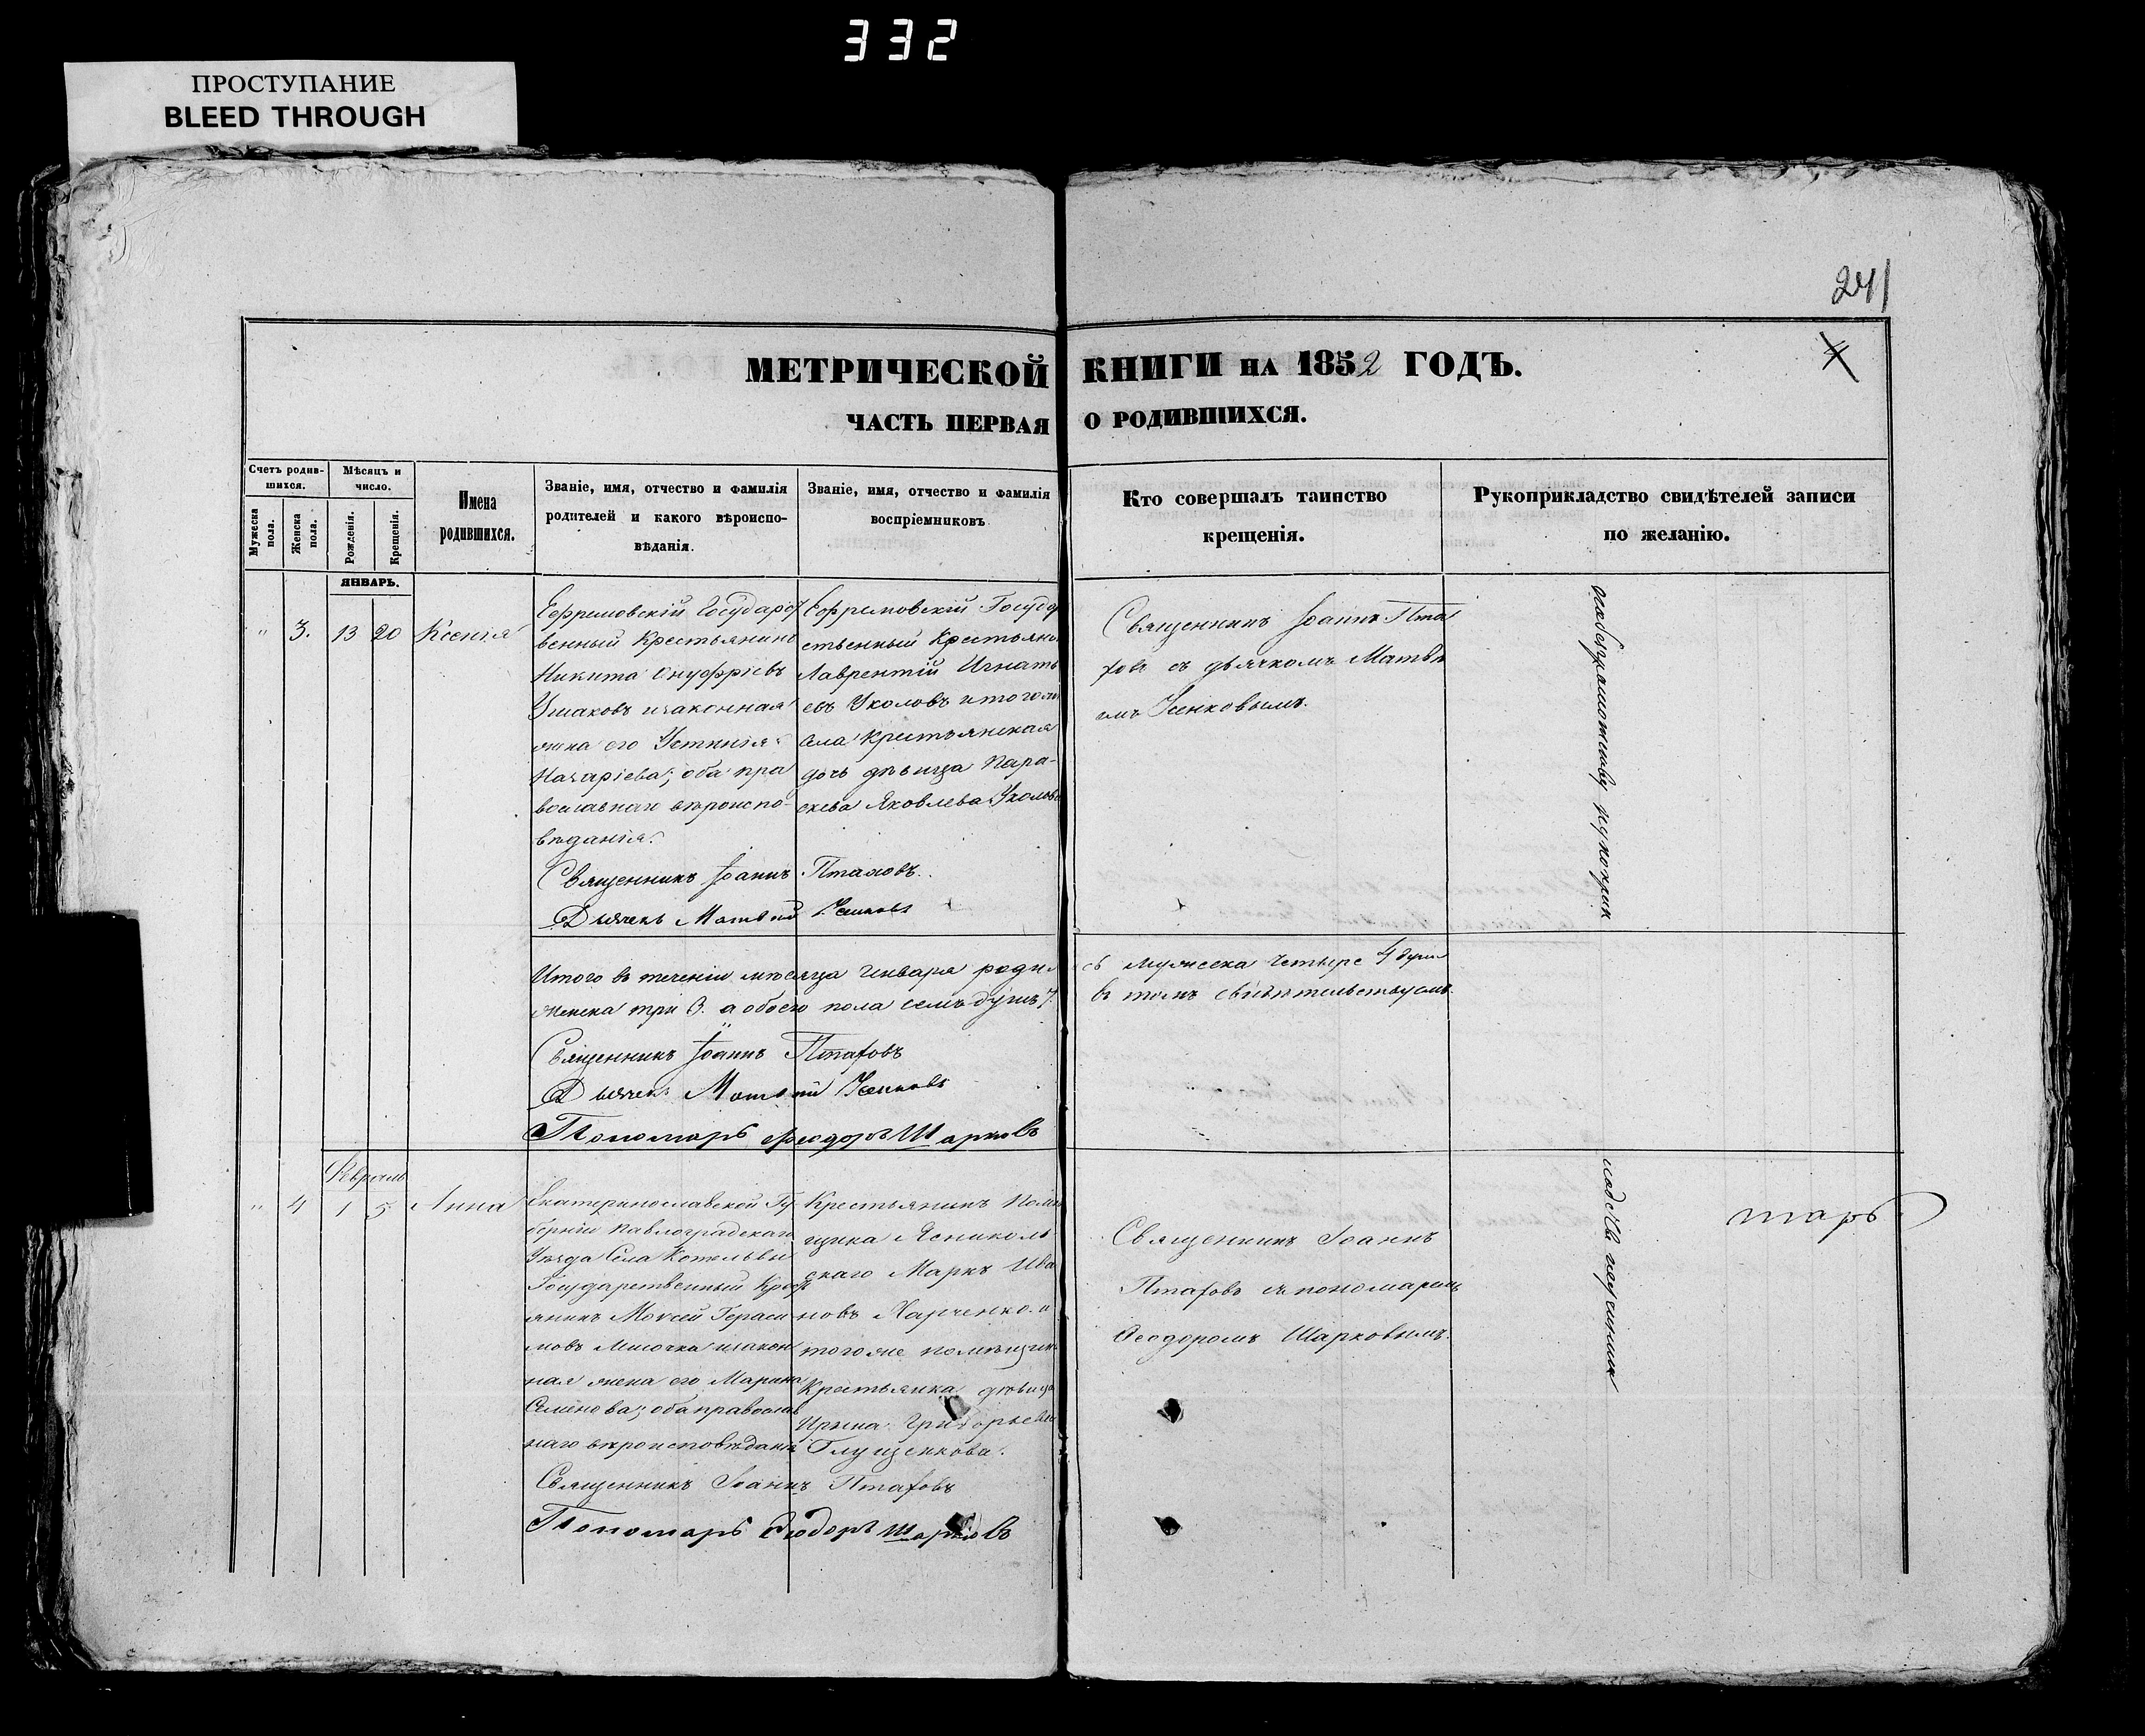 332
ПРОСТУПАНИЕ
BLEED THROUGH
241
МЕТРИЧЕСКОЙ КНИГИ НА 1852 ГОДЪ.
ЧАСТЬ ПЕРВАЯ О РОДИВШИХСЯ.
Счетъ родив-
шихся.
Мужеска пола.
Женска пола.
Мѣсяцъ и
число.
Рожденія.
Крещенія.
Имена
родившихся.
Званіе, имя, отчество и фамилія
родителей и какого вѣроиспо-
вѣданія.
Званіе, имя, отчество и фамилія
воспріемниковъ
Кто совершалъ таинство
крещенія.
Рукоприкладство свидѣтелей записи
по желанію.
ЯНВАРЬ.
" 3. 13 20 Ксенія
Ефремовскій Государст
венный Крестьянинъ
Никита Онуфріевъ
Ушаковъ изаконная
жена его
Назаріева; оба пра
вославнаго вѣроиспо-
вѣданія.
Ефремовскій Госуда
ственный Крестьян
Лаврентій Игнать
евъ Уколовъ итогоже
села Крестьянская
дочь дѣвица Пара-
скева Яковлева Уколова
Священникъ Іоаннъ Пта
ховъ съ дьячкомъ Матвѣ
емъ Усенковымъ.
Священникъ Іоаннъ Птаховъ.
Дьячекъ Матвѣй Усенковъ
Итого въ теченіи мѣсяца Генваря роди съ мужеска четыре 4 души
женска три 3. а обоего пола семь душъ 7. въ томъ свидѣтельствуемъ.
Священникъ Іоаннъ Птаховъ
Дьячекъ Матвѣй Усенковъ
Пономарь Феодоръ Шарковъ
Февраль
" 4 1 5 Анна
Екатеринославской Гу
берніи Павлоградскаго
Уѣзда Села Котельвы
Государственный Крест
янинъ Моисей Гераси
мовъ изакон
ная жена его Марина
Семенова; оба православ
наго вѣроисповѣданія
Крестьянинъ Помѣ
щика
скаго Маркъ Ива
новъ Харченко. и
тогоже помѣщика
Крестьянка дѣвица
Ирина Григорьева
Глущенкова.
Священникъ Іоаннъ
Птаховъ съ пономаремъ
Феодоромъ Шарковымъ.
тарь
Священникъ Іоаннъ Птаховъ
Пономарь Феодоръ Шарковъ